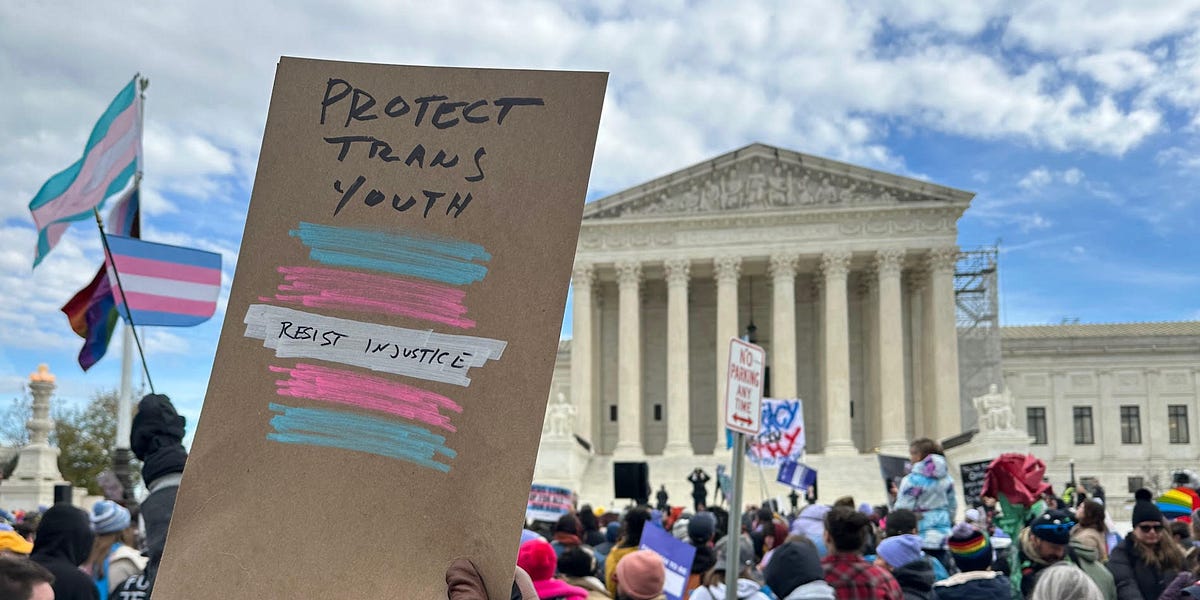 PROTECT
TRANS
YOUTH
RESIST INJUSTICE
NO
PARKING
ANY
TIME